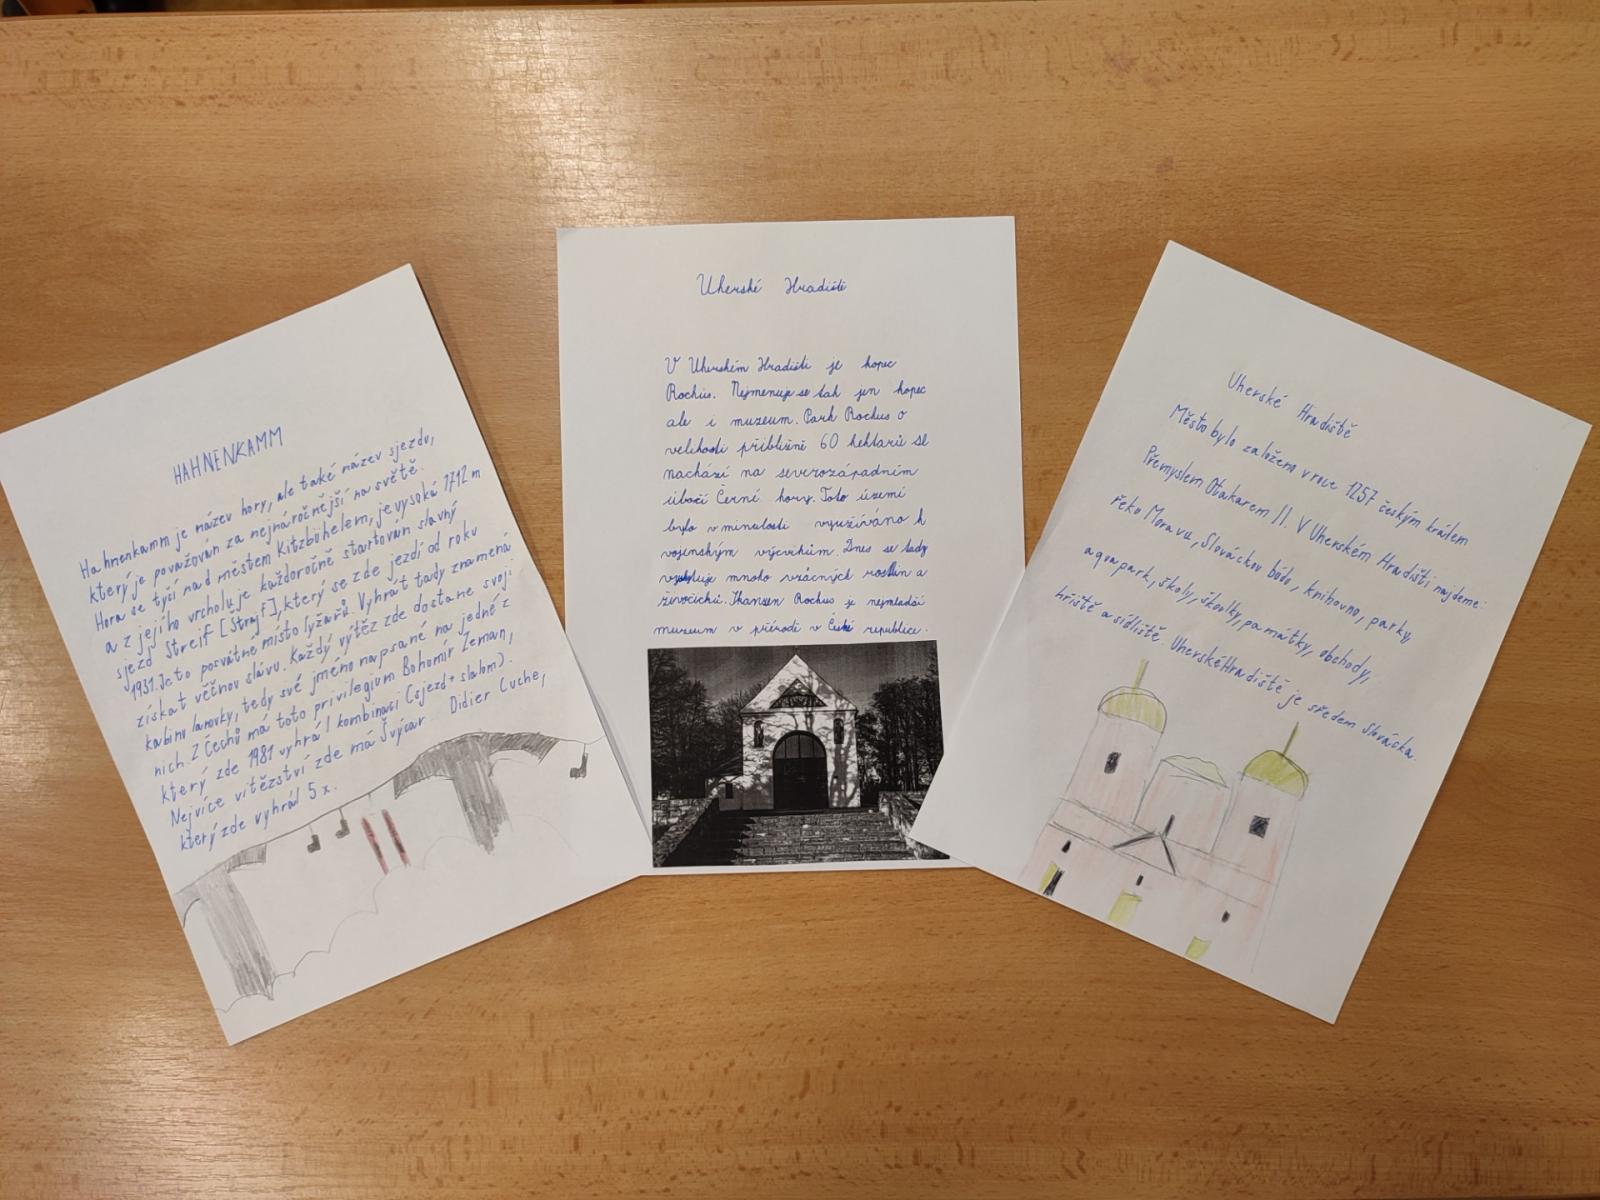 HAHNENKAMM
Hahnenkamm je název hory, ale také název sjezdu,
který je považován za nejnáročnější na světě.
Hora se tyčí nad městem Kitzbühelem, je vysoká 1712 m
a z jejího vrcholu je každoročně startován slavný
sjezd Streif [Štrajf], který se zde jezdí od roku
1931. Je to posvátné místo lyžařů. Vyhrát tady znamená
získat věčnou slávu. Každý vítěz zde dostane svoji
kabinu lanovky, tedy své jméno napsané na jedné z
nich. Z Čechů má toto privilegium Bohomír Zeman,
který zde 1981 vyhrál kombinaci (sjezd + slalom).
Nejvíce vítězství zde má Švýcar Didier Cuche,
který zde vyhrál 5 x.
Uherské Hradiště
V Uherském Hradišti je kopec
Rochus. Nejmenuje se tak jen kopec
ale i muzeum. Park Rochus o
velikosti přibližně 60 hektarů se
nachází na severozápadním
úbočí Černé hory. Toto území
bylo v minulosti využíváno k
vojenským výcvikům. Dnes se tady
vyskytuje mnoho vzácných rostlin a
živočichů. Skanzen Rochus je nejmladší
muzeum v přírodě v České republice.
Uherské Hradiště
Město bylo založeno v roce 1257 českým králem
Přemyslem Otakarem II. V Uherském Hradišti najdeme:
řeku Moravu, Slováckou búdu, knihovnu, parky,
aquapark, školy, školky, památky, obchody,
hřiště a sídliště. Uherské Hradiště je středem Slovácka.